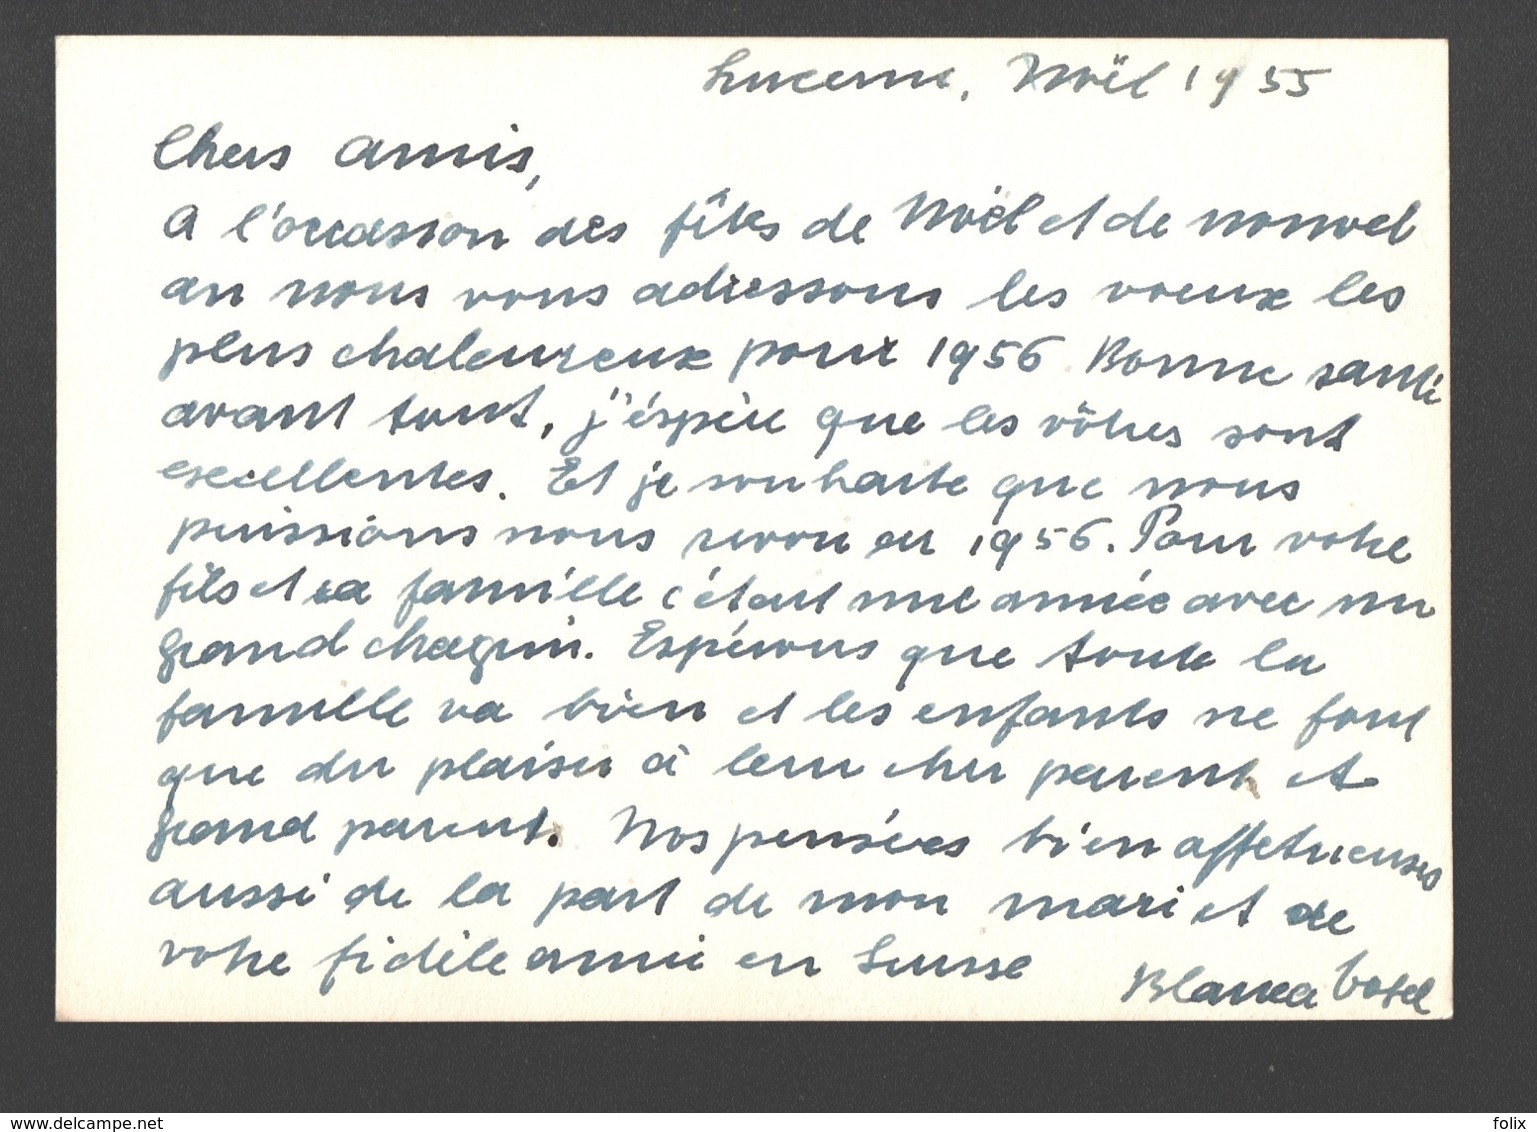 Lucerne, Noël 1955
Chers amis,
A l'occasion des fêtes de Noël et de nouvel
an nous vous adressons les voeux les
plus chaleureux pour 1956. Bonne santé
avant tout, j'éspère que les vôtres sont
excellentes. Et je souhaite que nous
puissions nous revoir en 1956. Pour votre
fils et sa famille c'était une année avec un
grand chagrin. Espérons que toute la
famille va bien et les enfants ne font
que du plaisir à leur cher parent et
grand parent. Nos pensées bien affetueuses
aussi de la part de mon mari et de
votre fidèle amie en Suisse
Blanca
www.delcampe.net
folix